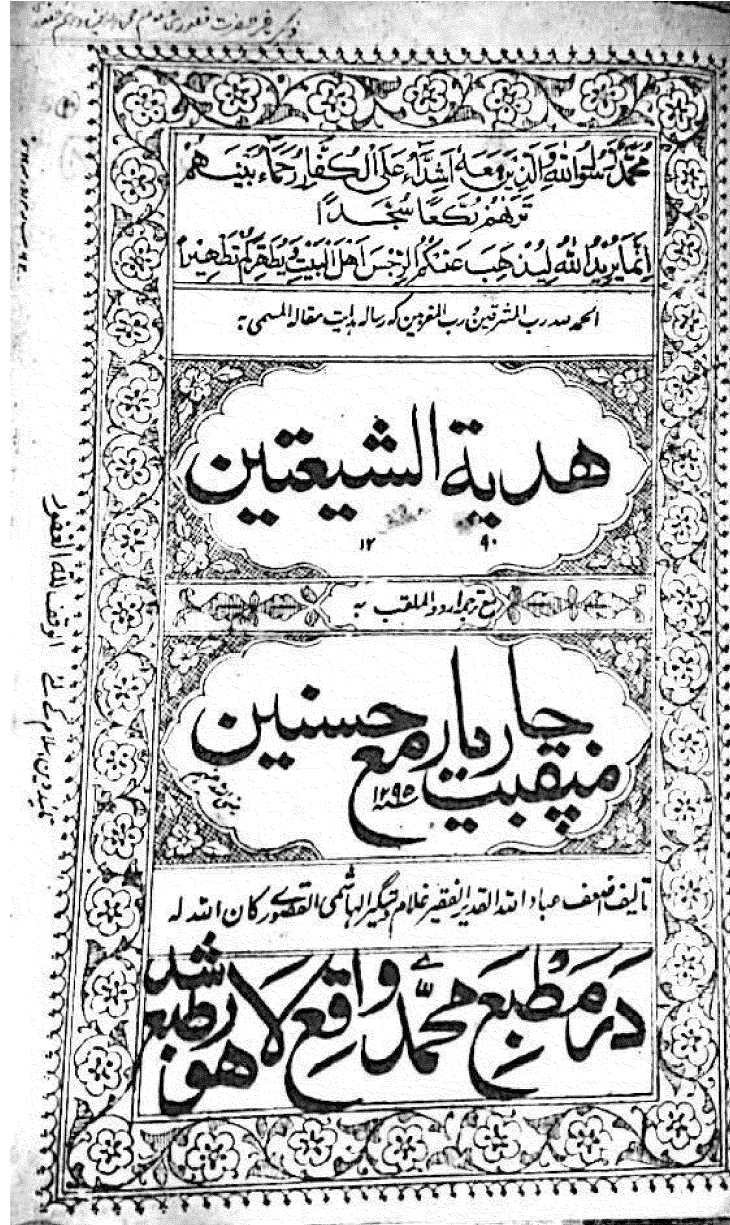 مُحَمَّدٌ رَسُولُ اللهِ وَالَّذِينَ مَعَهُ اَشِدَّاءُ عَلَى الْكُفَّارِ رُحَمَاءُ بَيْنَهُمْ
تَرَاهُمْ رُكَّعًا سُجَّدًا
اِنَّمَا يُرِيْدُ اللهُ لِيُذْهِبَ عَنْكُمُ الرِّجْسَ اَهْلَ الْبَيْتِ وَيُطَهِّرَكُمْ تَطْهِيْرًا
الحمد لله رب المشرقین و رب المغربین که رساله هدایت مقاله المسمی به
هدية الشيعتين
۱۲ ۹۰
مع ترجمه اردو الملقب به
منقبت چار یار مع حسنین
۱۲۹۵
تالیف اضعف عباد الله القدیر الفقیر غلام دستگیر الهاشمی القصوری کان الله له
در مطبع محمدی واقع لاهور طبع شد
الوقف لله الغفور